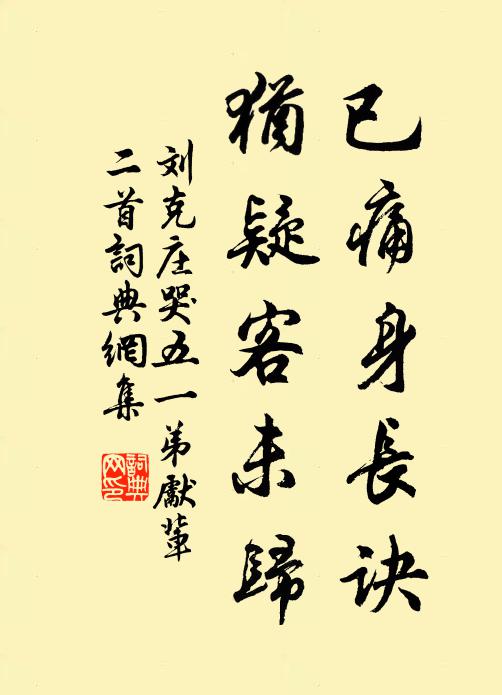 已痛身長訣
猶疑客未歸
刘克庄哭五一弟獻輩
二首詞典網集
詞典
网印